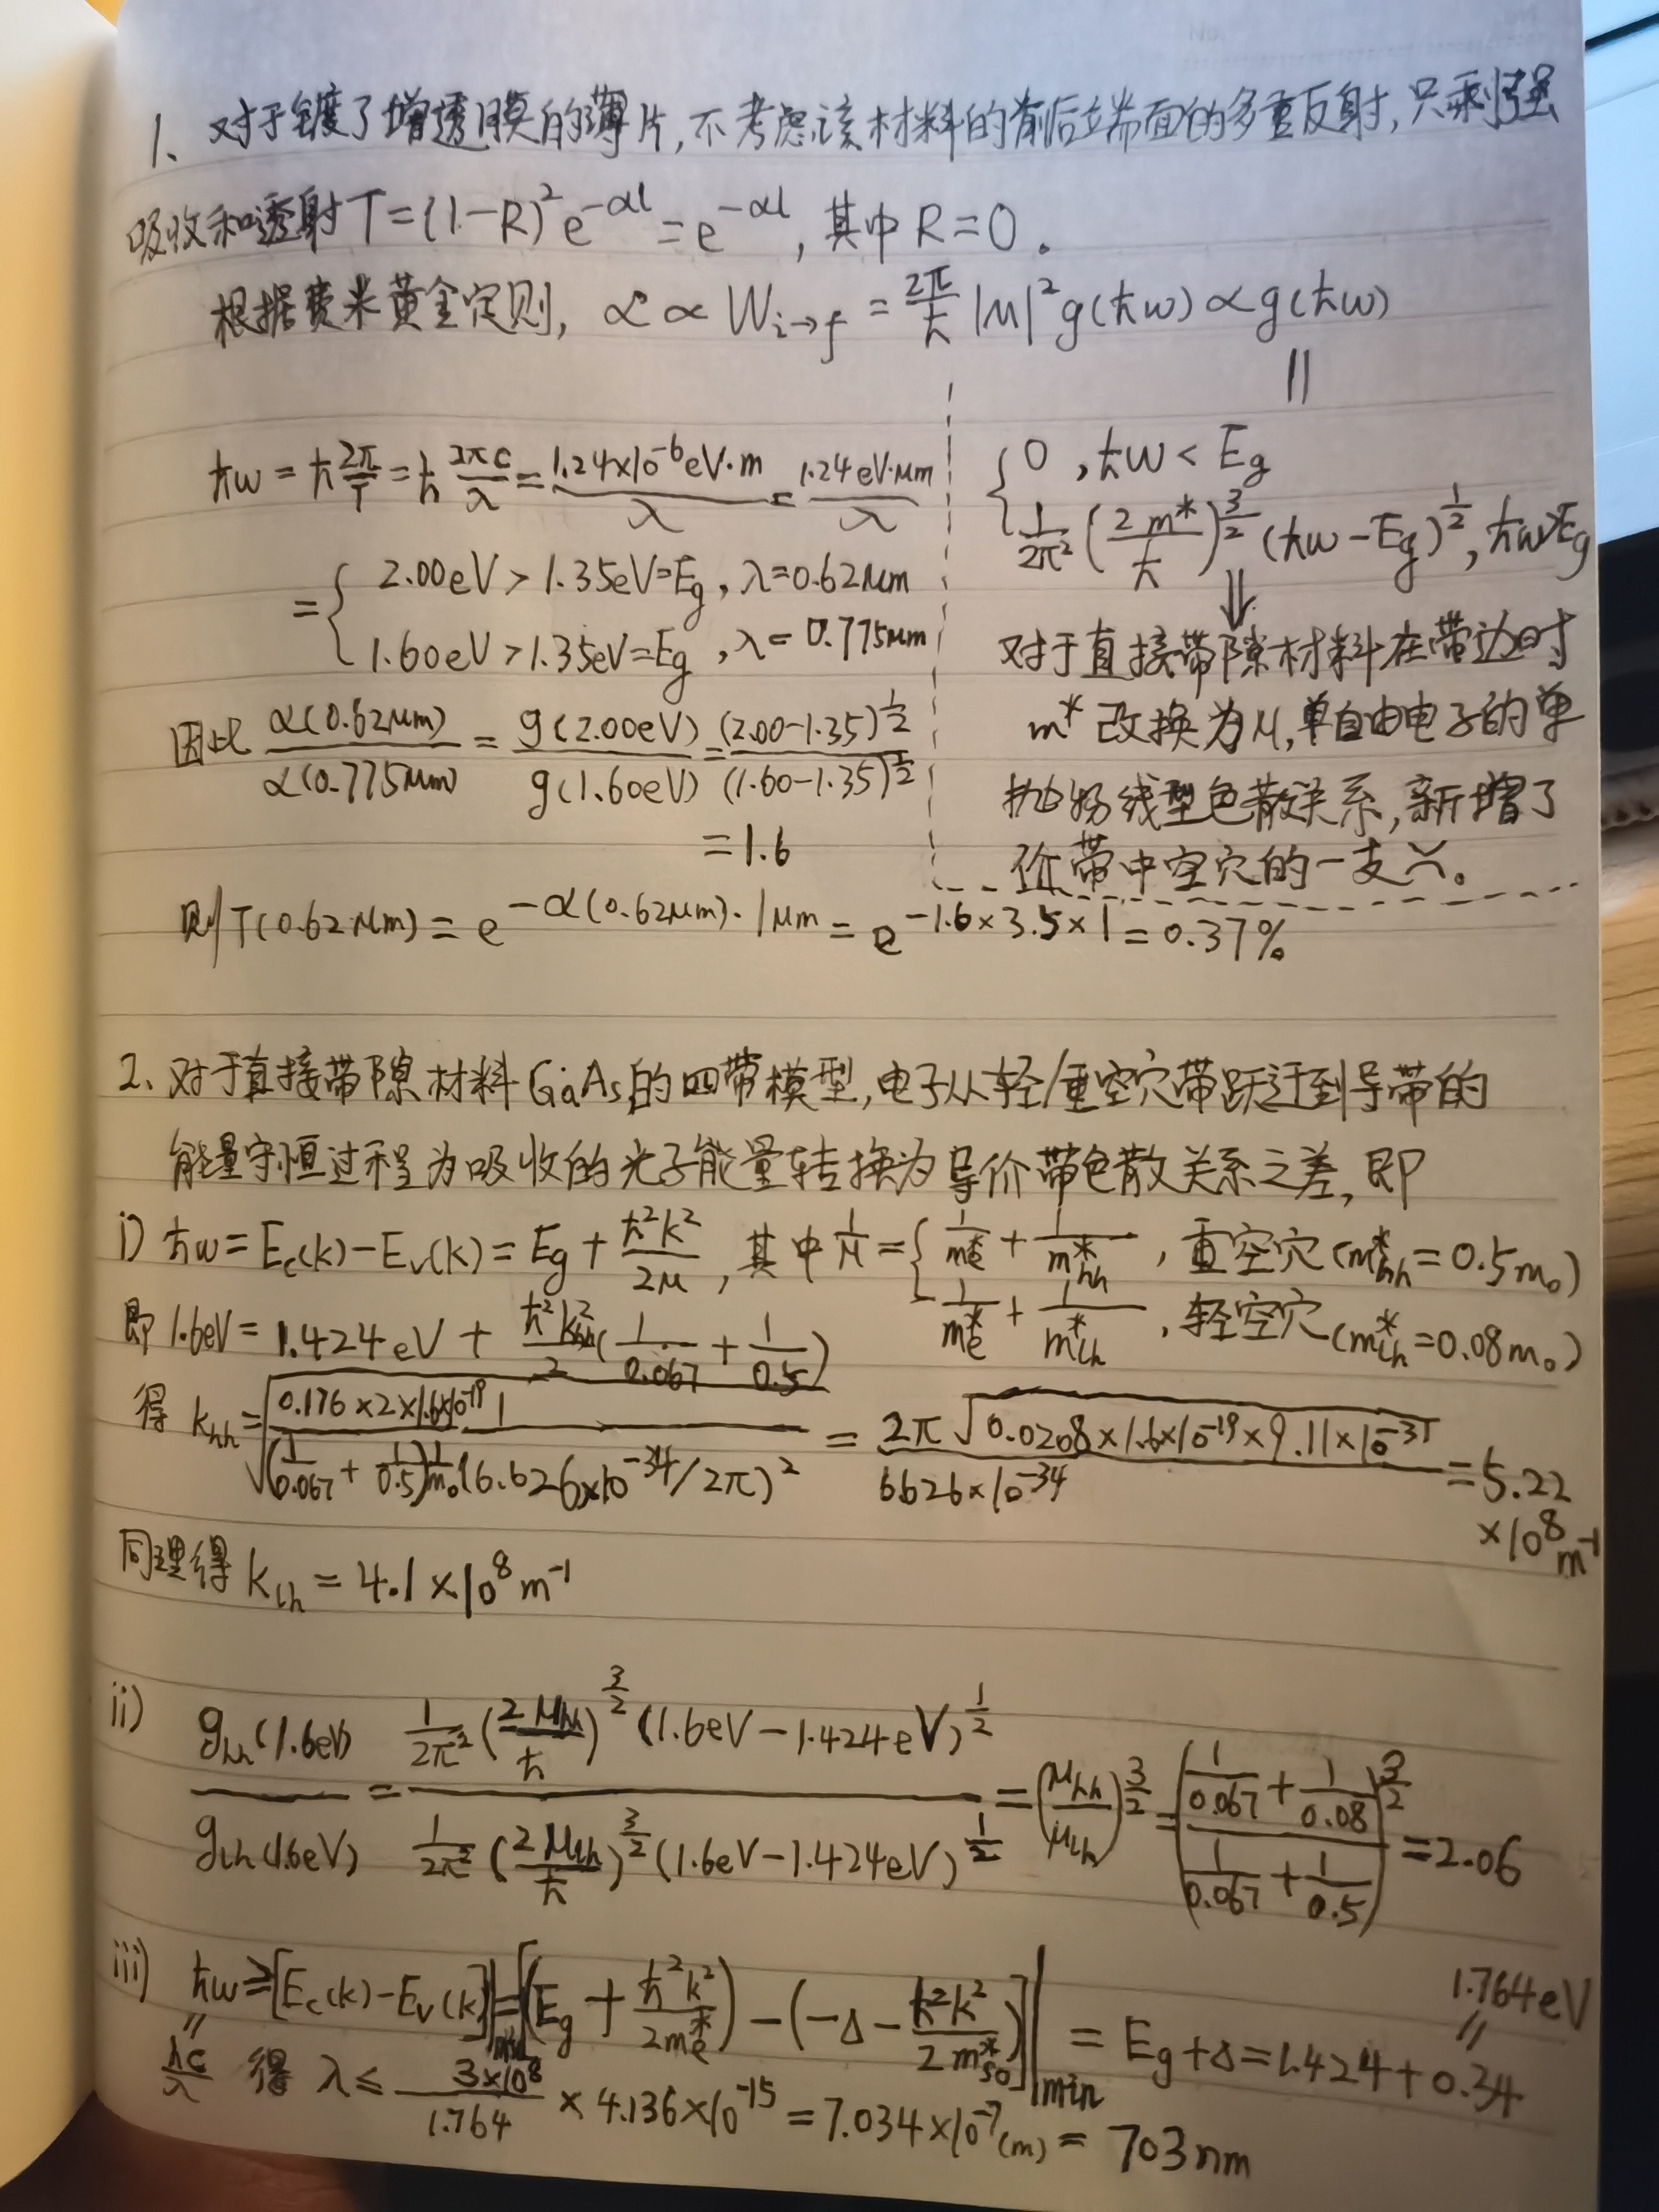 1、对于镀了增透膜的薄片,不考虑该材料的前后端面的多重反射,只剩强
吸收和透射T=(1-R)²e^{-αl}=e^{-αl}, 其中R=0。
根据费米黄金定则, α∝W_{i→f}=\frac{2π}{ħ}|M|²g(ħω)∝g(ħω)
||
ħω=ħ\frac{2π}{T}=ħ\frac{2πc}{λ}=\frac{1.24×10^{-6}eV·m}{λ}=\frac{1.24eV·μm}{λ}
={2.00eV>1.35eV=Eg, λ=0.62μm
1.60eV>1.35eV=Eg, λ=0.775μm
因此 \frac{α(0.62μm)}{α(0.775μm)}=\frac{g(2.00eV)}{g(1.60eV)}=\frac{(2.00-1.35)^{\frac{1}{2}}}{(1.60-1.35)^{\frac{1}{2}}}
=1.6
{0, ħω<Eg
\frac{1}{2π²}(\frac{2m*}{ħ})^{\frac{3}{2}}(ħω-Eg)^{\frac{1}{2}}, ħω>Eg
⇓
对于直接带隙材料在带边时
m*改换为μ,单自由电子的单
抛物线型色散关系,新增了
价带中空穴的一支
则T(0.62μm)=e^{-α(0.62μm)·1μm}=e^{-1.6×3.5×1}=0.37%
2、对于直接带隙材料GaAs的四带模型,电子从轻/重空穴带跃迁到导带的
能量守恒过程为吸收的光子能量转换为导价带色散关系之差,即
i) ħω=Ec(k)-Ev(k)=Eg+\frac{ħ²k²}{2μ}, 其中\frac{1}{μ}={\frac{1}{m_e^*}+\frac{1}{m_{hh}^*}, 重空穴(m_{hh}^*=0.5m₀)
\frac{1}{m_e^*}+\frac{1}{m_{lh}^*}, 轻空穴(m_{lh}^*=0.08m₀)
即1.6eV=1.424eV+\frac{ħ²k_{hh}²}{2}(\frac{1}{0.067}+\frac{1}{0.5})
得 k_{hh}=\sqrt{\frac{0.176×2×1.6×10^{-19}}{(\frac{1}{0.067}+\frac{1}{0.5})\frac{1}{m₀}(6.626×10^{-34}/2π)²}}=\frac{2π\sqrt{0.0208×1.6×10^{-19}×9.11×10^{-31}}}{6.626×10^{-34}}=5.22
×10⁸m⁻¹
同理得 k_{lh}=4.1×10⁸m⁻¹
ii) \frac{g_{hh}(1.6eV)}{g_{lh}(1.6eV)}=\frac{\frac{1}{2π²}(\frac{2μ_{hh}}{ħ})^{\frac{3}{2}}(1.6eV-1.424eV)^{\frac{1}{2}}}{\frac{1}{2π²}(\frac{2μ_{lh}}{ħ})^{\frac{3}{2}}(1.6eV-1.424eV)^{\frac{1}{2}}}=(\frac{μ_{hh}}{μ_{lh}})^{\frac{3}{2}}=(\frac{\frac{1}{0.067}+\frac{1}{0.08}}{\frac{1}{0.067}+\frac{1}{0.5}})^{\frac{3}{2}}=2.06
1.764eV
||
iii) ħω≥[Ec(k)-Ev(k)]|_{min}=[(Eg+\frac{ħ²k²}{2m_e^*})-(-Δ-\frac{ħ²k²}{2m_{so}^*})]|_{min}=Eg+Δ=1.424+0.34
||
\frac{hc}{λ} 得 λ≤\frac{3×10⁸}{1.764}×4.136×10^{-15}=7.034×10^{-7}(m)=703nm